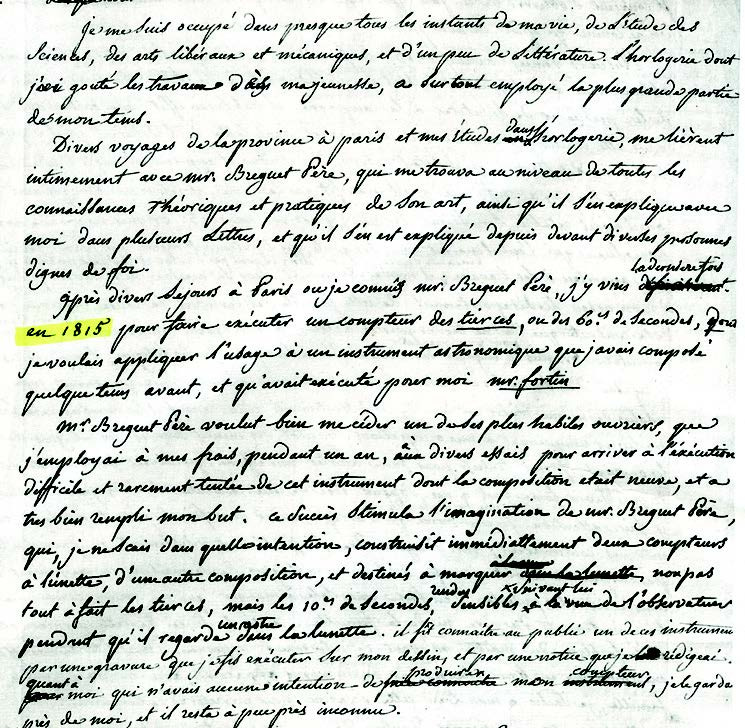 Je me suis occupé dans presque tous les instants de ma vie, de l'Etude des
Sciences, des arts libéraux et mécaniques, et d'un peu de Littérature. L'horlogerie dont
j'ai gouté les travaux dès ma jeunesse, a surtout employé la plus grande partie
de mon tems.
Divers voyages de la province à paris et mes Etudes dans l'horlogerie, me lièrent
intimement avec mr. Breguet Père, qui me trouva au niveau de toutes les
connaissances Théoriques et pratiques de son art, ainsi qu'il s'en explique avec
moi dans plusieurs Lettres, et qu'il s'en est expliqué depuis devant diverses personnes
dignes de foi.
la derniere fois
après divers Séjours à Paris ou je connus mr. Breguet Père, j'y vins
en 1815 pour faire exécuter un compteur des tierces, ou des 60.es de secondes, dont
je voulais appliquer l'usage à un instrument astronomique que j'avais composé
quelque tems avant, et qu'avait exécuté pour moi mr. fortin
mr. Breguet Père voulut bien me céder un de ses plus habiles ouvriers, que
j'employai à mes frais, pendant un an, à divers essais pour arriver à l'exécution
difficile et rarement tentée de cet instrument dont la composition etait neuve, et a
très bien rempli mon but. ce succès stimula l'imagination de mr. Breguet Père,
qui, je ne sais dans quelle intention, construisit immédiatement deux compteurs
à lunette, d'une autre composition, et destinés à marquer dans la lunette, non pas
rendus suivant lui
tout à fait les tierces, mais les 10.es de secondes, sensibles à la vue de l'observateur
un astre
pendant qu'il regarde dans la lunette. il fit connaître au public un de ces instrumens
par une gravure que je fis exécuter sur mon dessin, et par une notice que je rédigeai.
quant à produire compteur
moi qui n'avais aucune intention de faire connaitre mon instrument, je le garde
près de moi, et il reste à peu près inconnu.